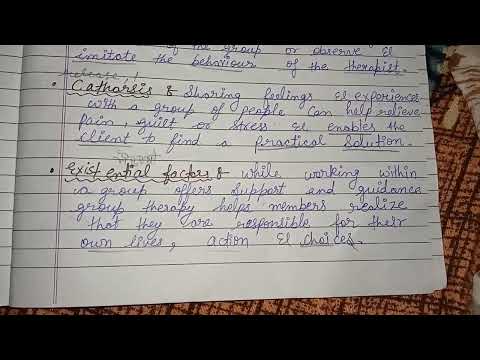 of the group or observe &
imitate the behaviour of the therapist.
release!
• Catharsis : Sharing feelings & experiences
with a group of people can help relieve
pain, guilt or stress & enables the
client to find a practical solution.
• Existential factors : while working within
a group offers support and guidance
group therapy helps members realize
that they are responsible for their
own lives, action & choices.